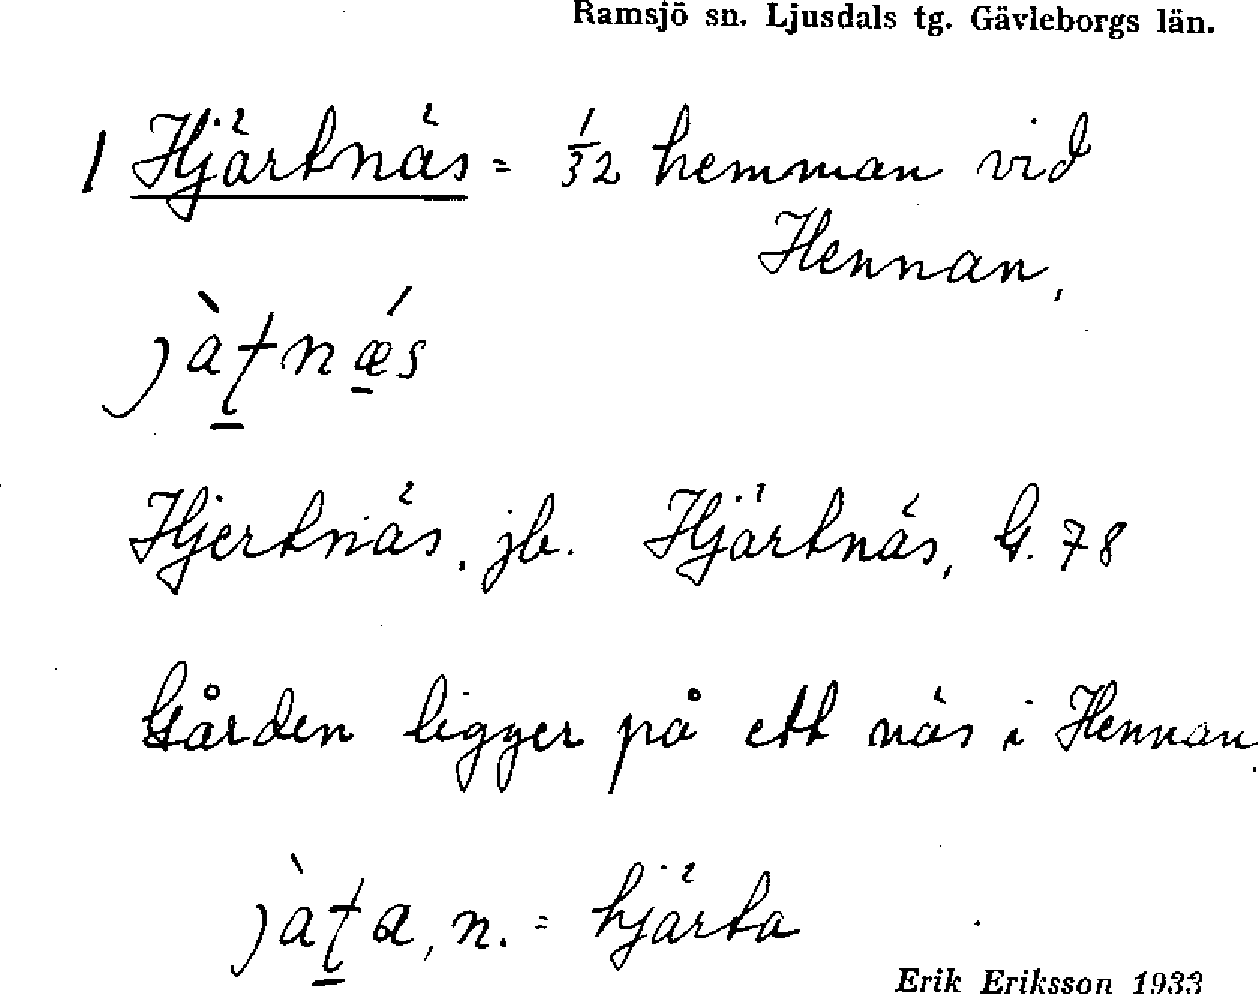 Ramsjö sn. Ljusdals tg. Gävleborgs län.
1 Hjärtnäs = 1/32 hemman vid
Hennan,
jàʈnǽs
Hjertnäs, jb. Hjärtnäs, G. 78
Gården ligger på ett näs i Hennan.
jàʈa, n. = hjärta
Erik Eriksson 1933